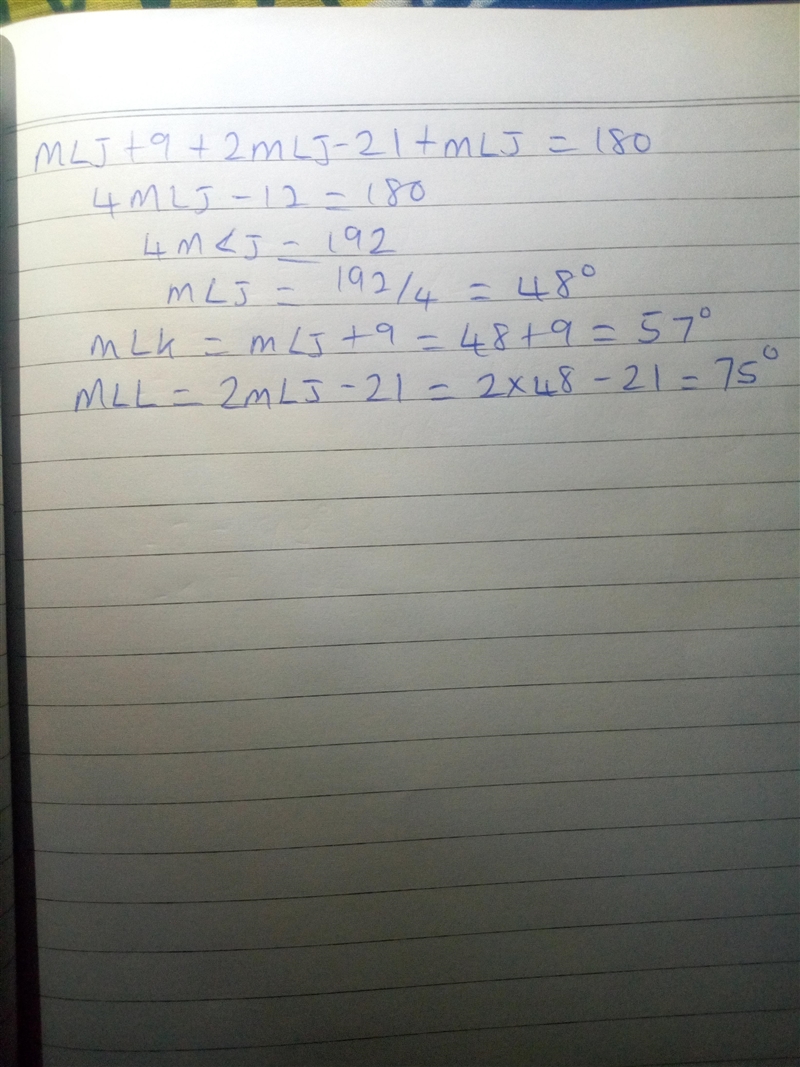 m∠J + 9 + 2m∠J - 21 + m∠J = 180
4m∠J - 12 = 180
4m<J = 192
m∠J = 192/4 = 48°
m∠k = m∠J + 9 = 48 + 9 = 57°
m∠L = 2m∠J - 21 = 2×48 - 21 = 75°